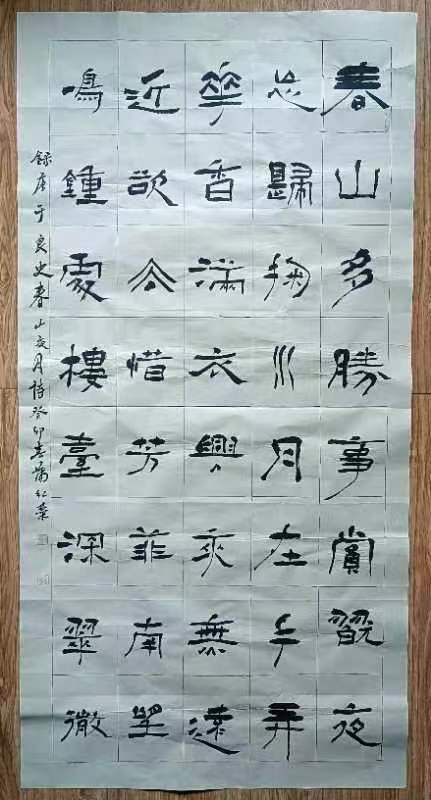 春山多勝事賞翫夜
忘歸掬水月在手弄
華香滿衣興來無遠
近欲去惜芳菲南望
鳴鍾處樓臺深翠微
錄唐于良史春山夜月詩癸卯